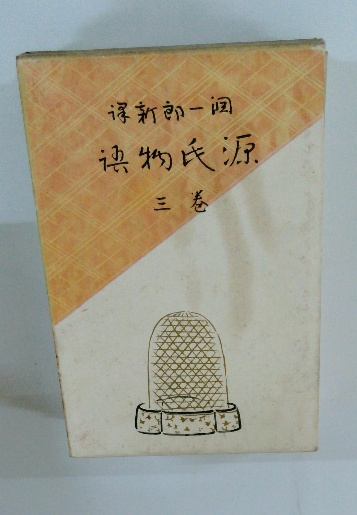 潤一郎新譯
源氏物語
卷三